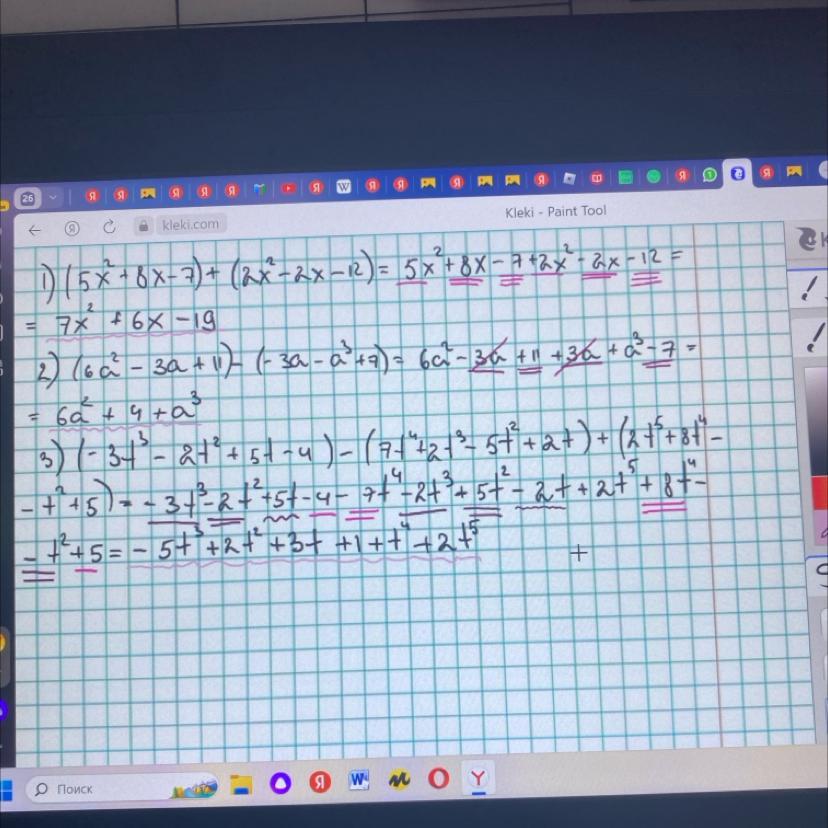 26
kleki.com
Kleki - Paint Tool
1) (5x² + 8x - 7) + (2x² - 2x - 12) = 5x² + 8x - 7 + 2x² - 2x - 12 =
= 7x² + 6x - 19
2) (6a² - 3a + 11) - (-3a - a³ + 7) = 6a² - 3a + 11 + 3a + a³ - 7 =
= 6a² + 4 + a³
3) (-3t³ - 2t² + 5t - 4) - (7t⁴ + 2t³ - 5t² + 2t) + (2t⁵ + 8t⁴ -
- t² + 5) = -3t³ - 2t² + 5t - 4 - 7t⁴ - 2t³ + 5t² - 2t + 2t⁵ + 8t⁴ -
- t² + 5 = -5t³ + 2t² + 3t + 1 + t⁴ + 2t⁵
Поиск